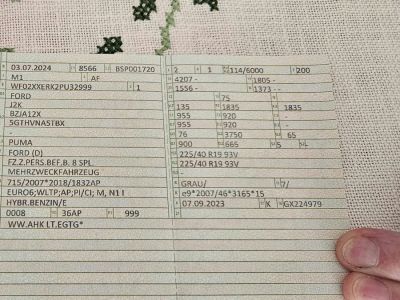 03.07.2024 8566 BSP001720
M1 AF
WF02XXERK2PU32999 1
FORD
J2K
BZJA12X
5GTHVNASTBX
-
PUMA
FORD (D)
FZ.Z.PERS.BEF.B. 8 SPL.
MEHRZWECKFAHRZEUG
715/2007*2018/1832AP
EURO6;WLTP;AP;PI/CI; M, N1 I
HYBR.BENZIN/E
0008 36AP 999
WW.AHK LT.EGTG*
2 1 114/6000 200
4207 - 1805 -
1556 - 1373 -
75
135 1835 1835
955 920 -
955 920 -
76 3750 65
900 665 5 -
225/40 R19 93V
225/40 R19 93V
GRAU/ 7/
e9*2007/46*3165*15
07.09.2023 K GX224979